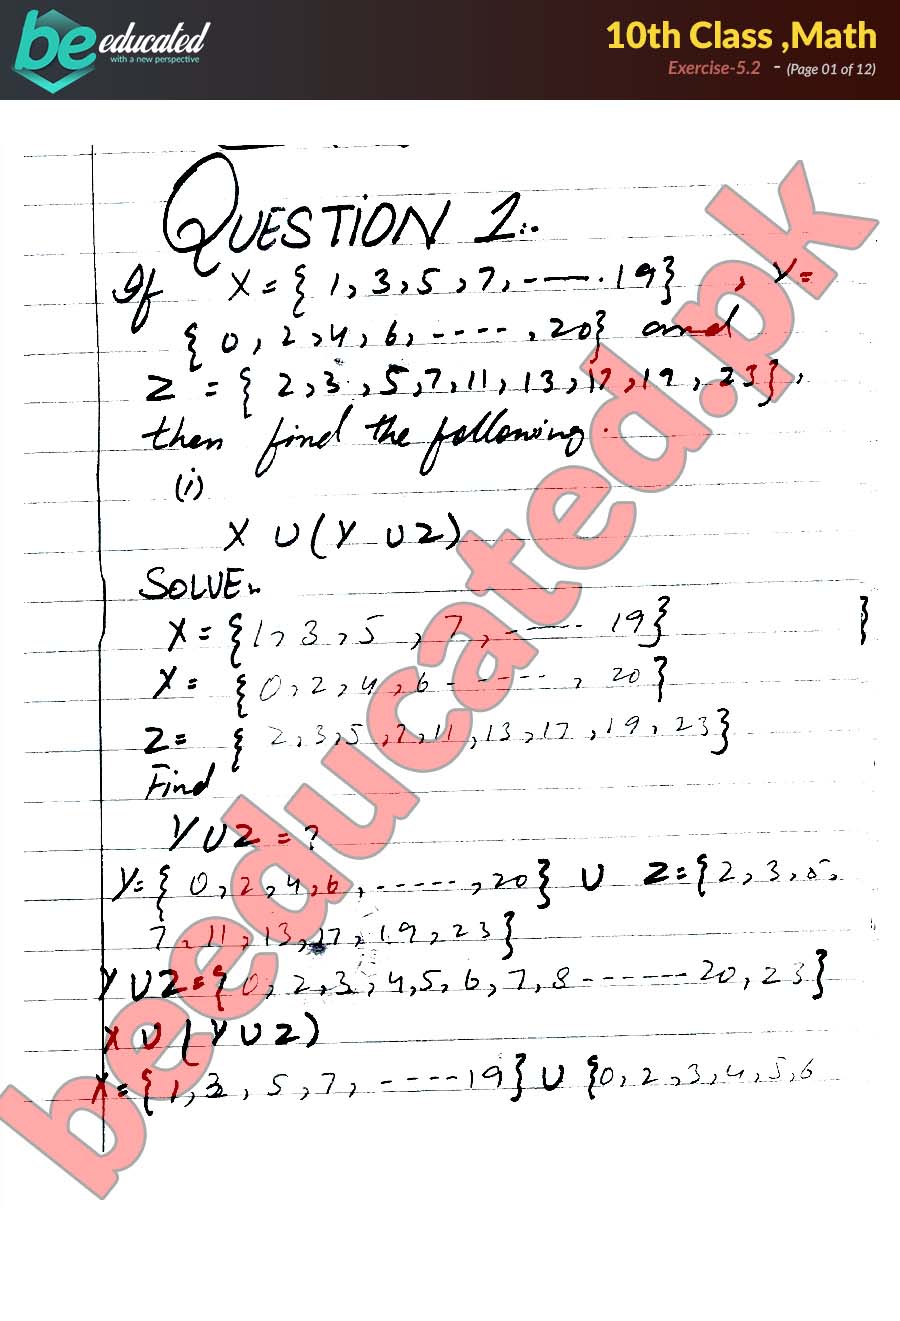 be educated
with a new perspective
10th Class ,Math
Exercise-5.2 - (Page 01 of 12)
QUESTION 1:.
If X = { 1, 3, 5, 7, ----- . 19} , Y =
{ 0, 2, 4, 6, ----, 20} and
Z = { 2, 3, 5, 7, 11, 13, 17, 19, 23},
then find the following.
(i)
X U (Y U Z)
SOLVE:-
X = {1, 3, 5, 7, ----- 19} }
Y = {0, 2, 4, 6 ------, 20}
Z = { 2, 3, 5, 7, 11, 13, 17, 19, 23}
Find
Y U Z = ?
Y = { 0, 2, 4, 6, -----, 20} U Z = {2, 3, 5,
7, 11, 13, 17, 19, 23}
Y U Z = {0, 2, 3, 4, 5, 6, 7, 8 ------ 20, 23}
X U (Y U Z)
X = {1, 3, 5, 7, ---- 19} U {0, 2, 3, 4, 5, 6
beeducated.pk